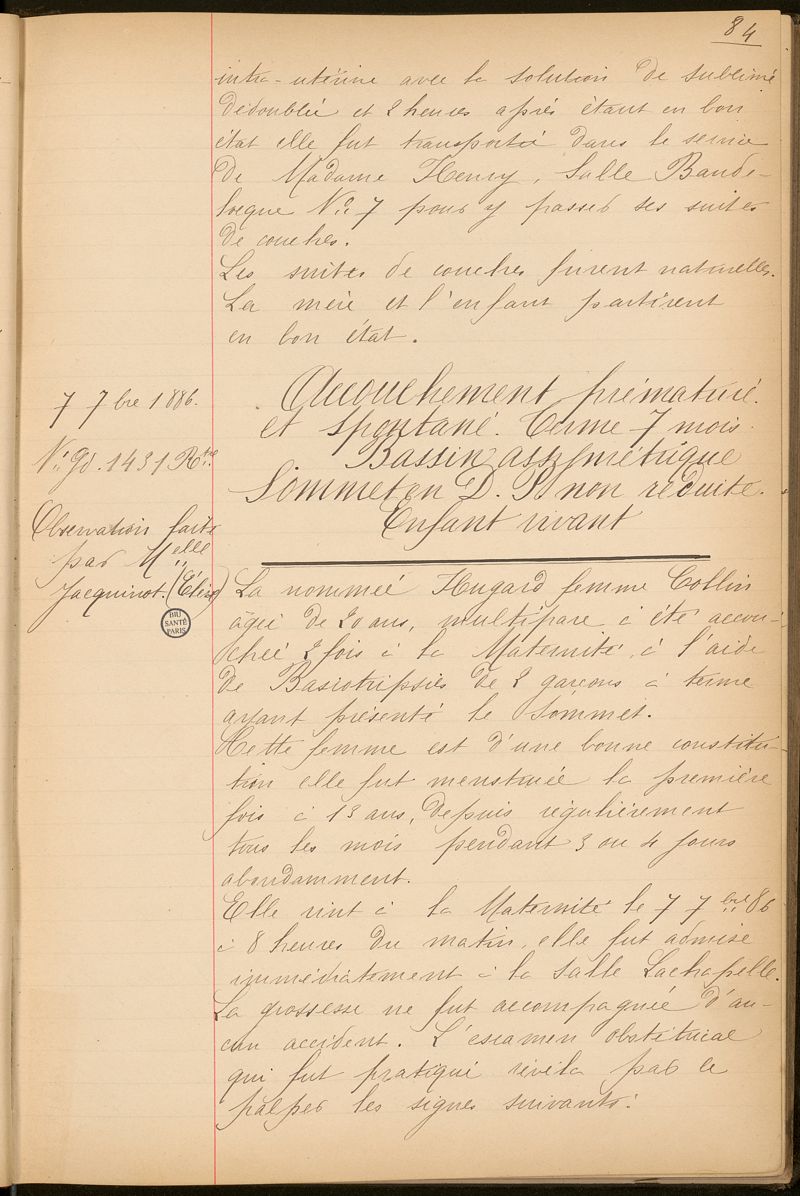 84
intra-utérine avec la solution de sublimé
dédoublée et 2 heures après étant en bon
état elle fut transportée dans le service
de Madame Henry, Salle Baude-
locque N° 7 pour y passer ses suites
de couches.
Les suites de couches furent naturelles.
La mère et l'enfant partirent
en bon état.
7 7bre 1886.
N° gd. 1431 Rtre
Observation faite
par Melle
Jacquinot. (Élise)
BIU
SANTÉ
PARIS
Accouchement prématuré
et spontané. Terme 7 mois.
Bassin assymétrique
Sommet en D. P. non réduite.
Enfant vivant
La nommée Hugard femme Collin
âgée de 20 ans, multipare a été accou-
chée 2 fois à la Maternité, à l'aide
de Basiotripsies de 2 garçons à terme
ayant présenté le sommet.
Cette femme est d'une bonne constitu-
tion elle fut menstruée la première
fois à 13 ans, depuis régulièrement
tous les mois pendant 3 ou 4 jours
abondamment.
Elle vint à la Maternité le 7 7bre 86
à 8 heures du matin, elle fut admise
immédiatement à la salle Lachapelle.
La grossesse ne fut accompagnée d'au-
cun accident. L'examen obstétrical
qui fut pratiqué révéla par le
palper les signes suivants: